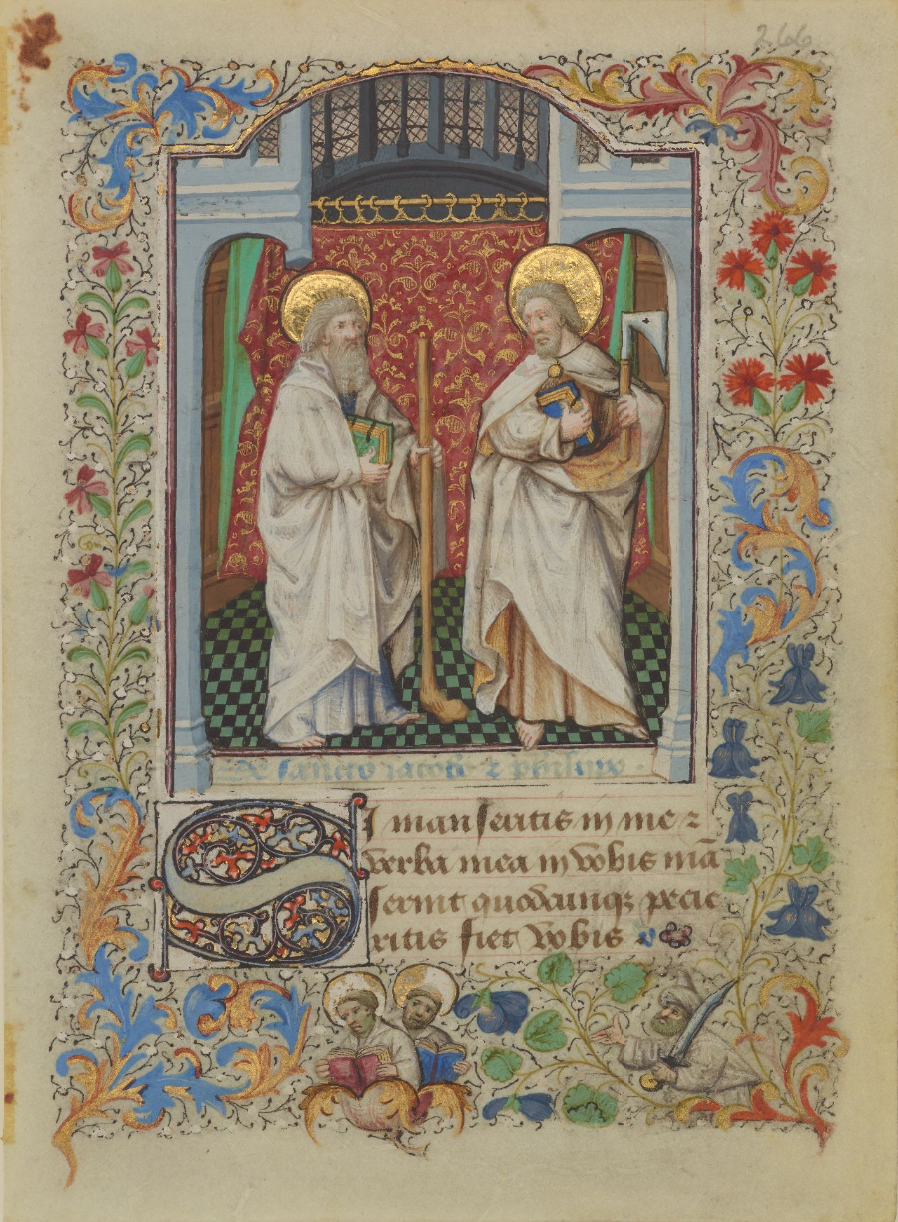 266
De sancto iacobo & philippo.
SI manseritis in me ⁊
verba mea in vobis mā
serint quodcunqꝫ pecie
ritis fiet vobis v